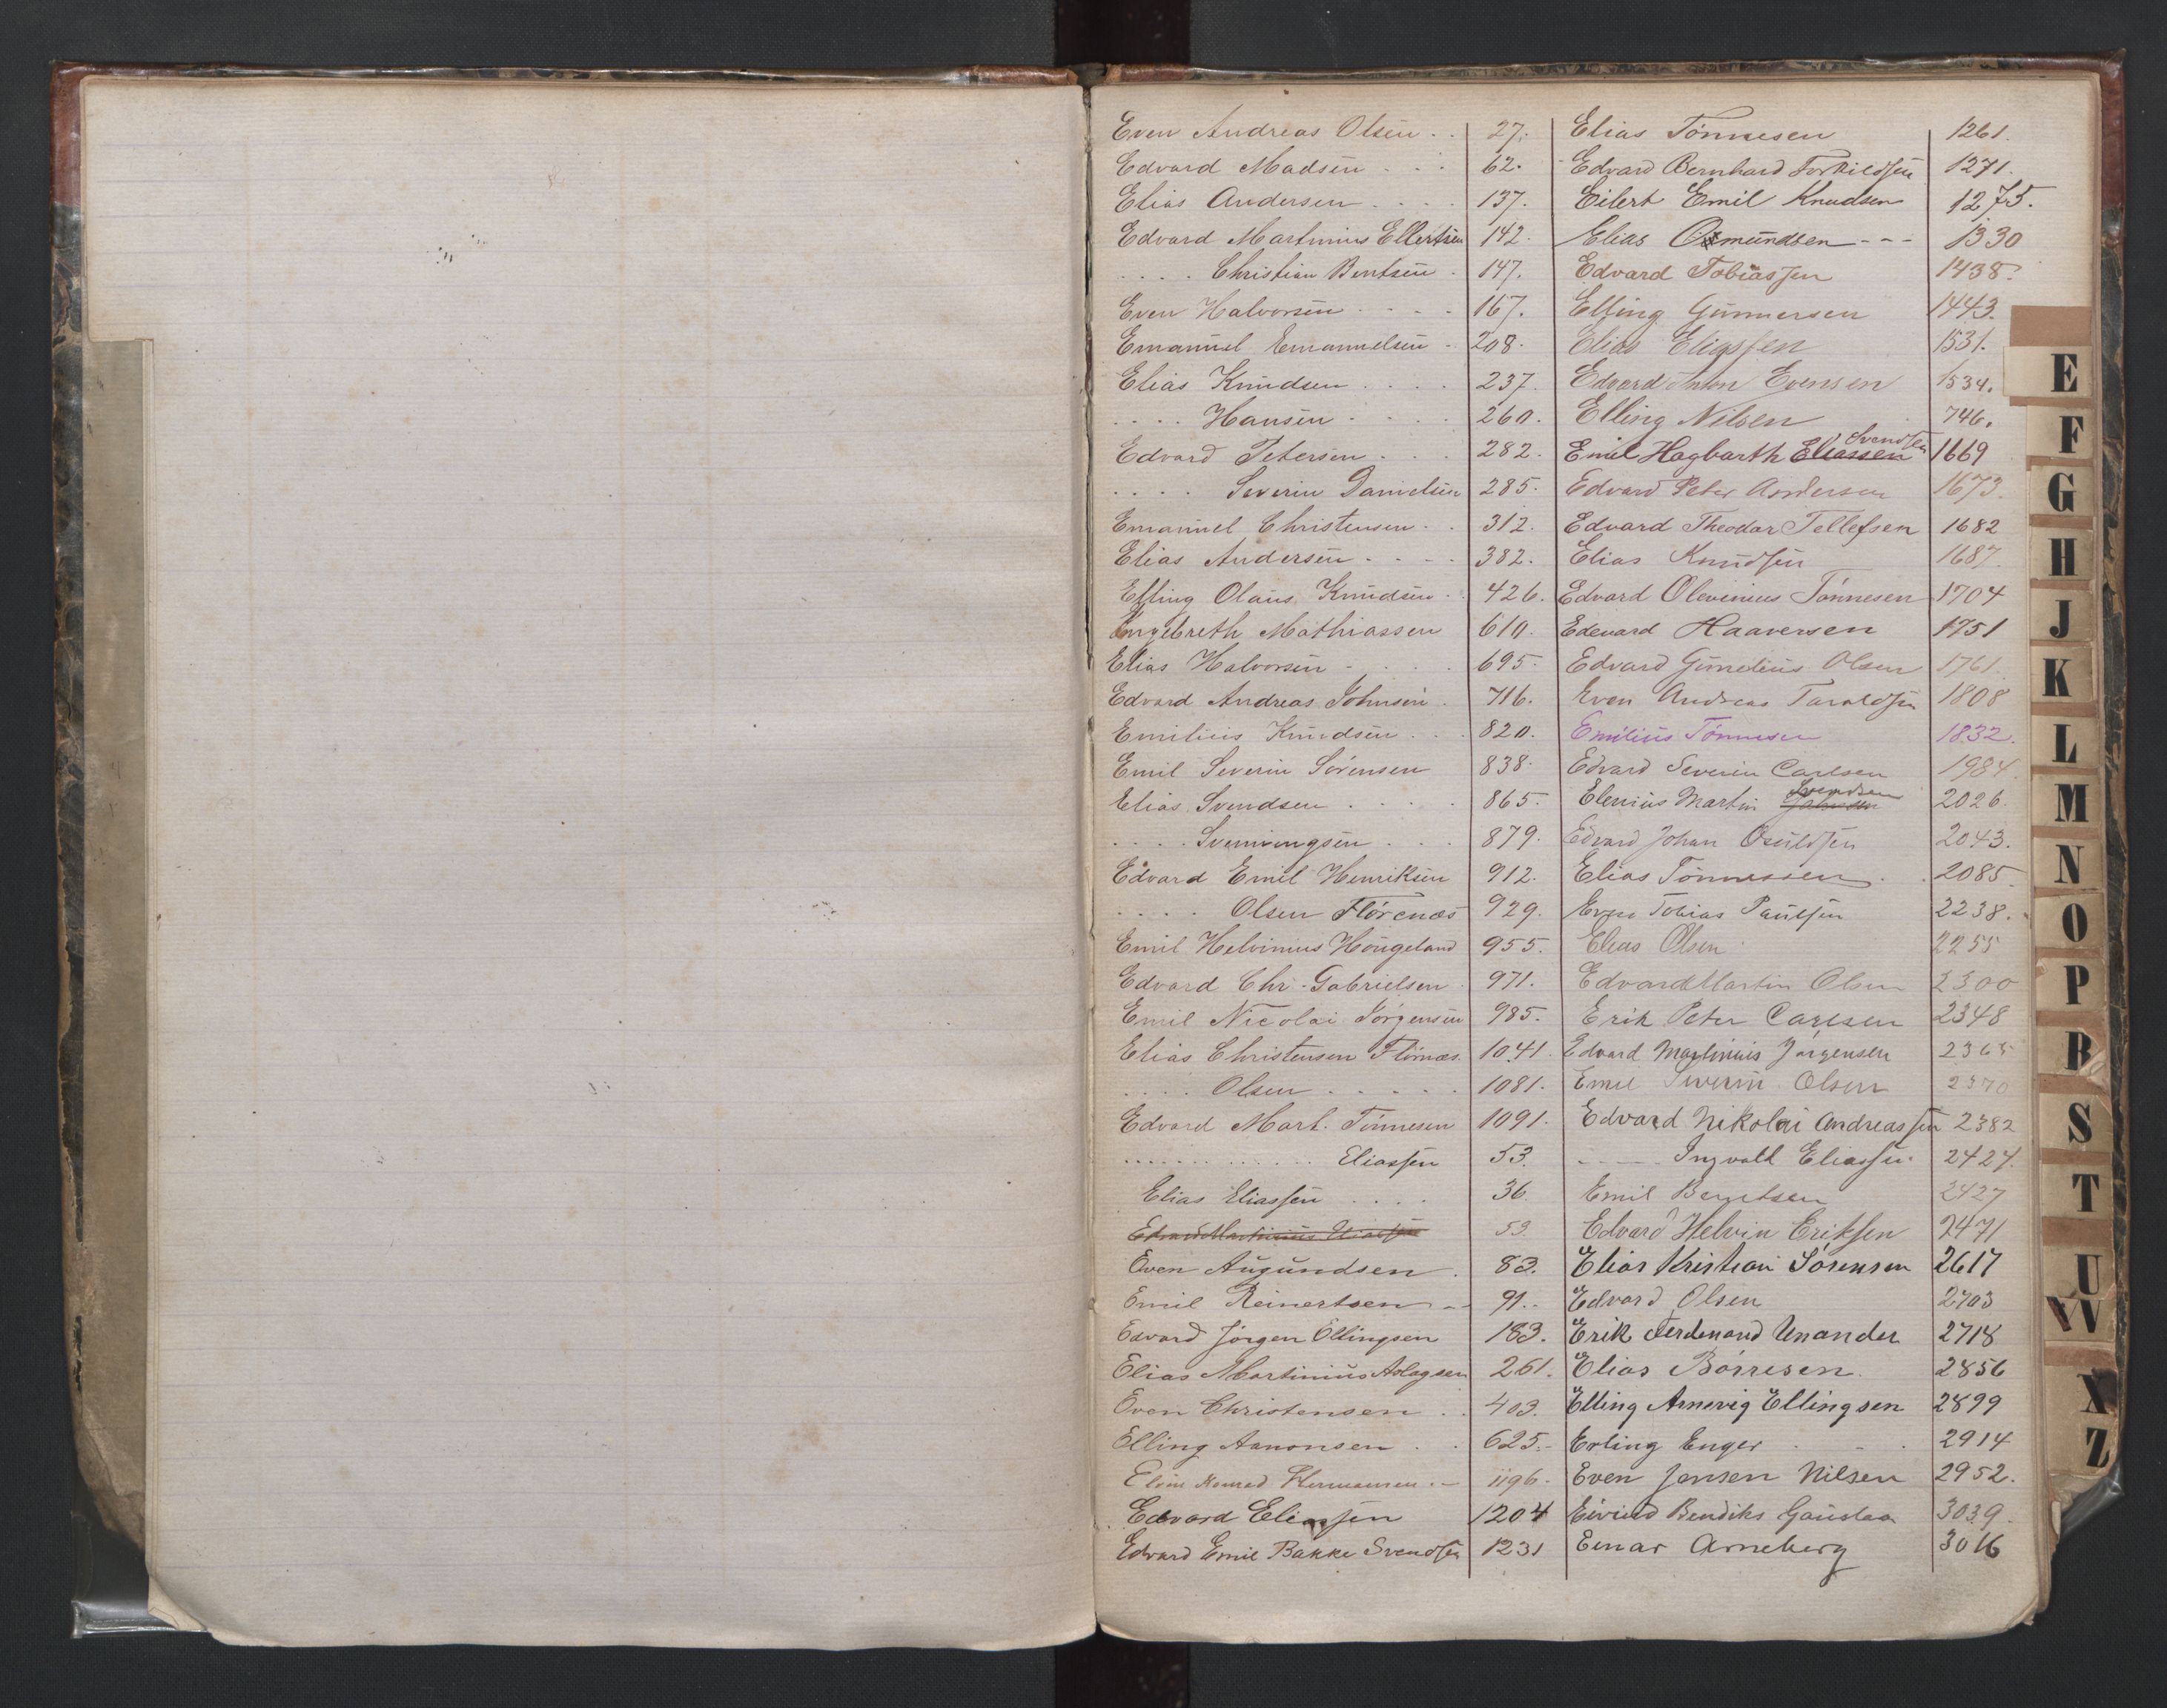 Even Andreas Olsen . . 27.
Edvard Madsen . . . 62.
Elias Andersen . . . . 137.
Edvard Martinius Ellertsen 142.
. . . . Christian Bentsen . 147.
Even Halvorsen . . . . 167.
Emanuel Emanuelsen . 208.
Elias Knudsen . . . . 237.
. . . . Hansen . . . . 260.
Edvard Petersen . . . 282.
. . . . Severin Danielsen 285.
Emanuel Christensen . . 312.
Elias Andersen . . . . 382.
Elling Olaus Knudsen . . 426.
Engebreth Mathiassen 610.
Elias Halvorsen . . . . 695.
Edvard Andreas Johnsen . 716.
Emilius Knudsen . . . 820.
Emil Severin Sørensen 838.
Elias Svendsen . . . . 865.
. . . . Svenningsen . . . 879.
Edvard Emil Henriksen 912.
. . . . Olsen Flørenæs 929.
Emil Helvinius Hougeland 955.
Edvard Chr. Gabrielsen . 971.
Emil Nicolai Jørgensen 985.
Elias Christensen Flörnæs. 1041.
. . . . Olsen . . . . . 1081.
Edvard Mart. Tönnesen 1091.
. . . . . . . . . . . . Eliassen 53.
Elias Eliassen . . . . 36.
Edvard Martinius Eliassen 53.
Even Augundsen . 83.
Emil Reinertsen - - 91.
Edvard Jörgen Ellingsen 183.
Elias Martinius Aslagsen 261.
Even Christensen . . 403.
Elling Aanonsen . . 625.
Konrad Hermansen . - 1196.
Edvard Eliassen 1204
Edvard Emil Bakke Svendsen 1231
Elias Tönnesen 1261.
Edvard Bernhard Torkildsen 1271.
Eilert Emil Knudsen 1275.
Elias Osmundsen - - - 1330
Edvard Tobiassen 1438.
Elling Gunnersen 1443.
Elias Eliassen 1531.
Edvard Anton Evensen 1534.
Elling Nilsen 746.
Svendsen
Emil Hagbarth Eliassen 1669
Edvard Peter Andersen 1673.
Edvard Theodor Tellefsen 1682
Elias Knudsen 1687.
Edvard Olevinius Tönnesen 1704
Edevard Haaversen 1751
Edvard Gunelius Olsen 1761.
Even Andreas Taraldsen 1808
Emilius Tönnesen 1832.
Edvard Severin Carlsen 1984
Svendsen
Elenius Martin Johnsen 2026.
Edvard Johan Osuldsen 2043.
Elias Tönnessen . . 2085.
Even Tobias Paulsen 2238.
Elias Olsen 2255
Edvard Martin Olsen 2300
Erik Peter Carlsen 2348
Edvard Martinius Jörgensen 2365
Emil Severin Olsen 2370
Edvard Nikolai Andreassen 2382
- - - - Ingvald Eliassen 2424.
Emil Berntsen 2427
Edvard Helvin Eriksen 2471
Elias Kristian Sörensen 2617
Edvard Olsen 2703
Erik Ferdinand Unander 2718
Elias Börresen. 2856
Elling Arnevig Ellingsen 2899
Erling Enger . - . 2914
Even Jensen Nilsen 2952.
Eivind Bendiks Gauslaa 3039.
Einar Arneberg 3016
E
F
G
H
J
K
L
M
N
O
P
R
S
T
U
VW
X
Z